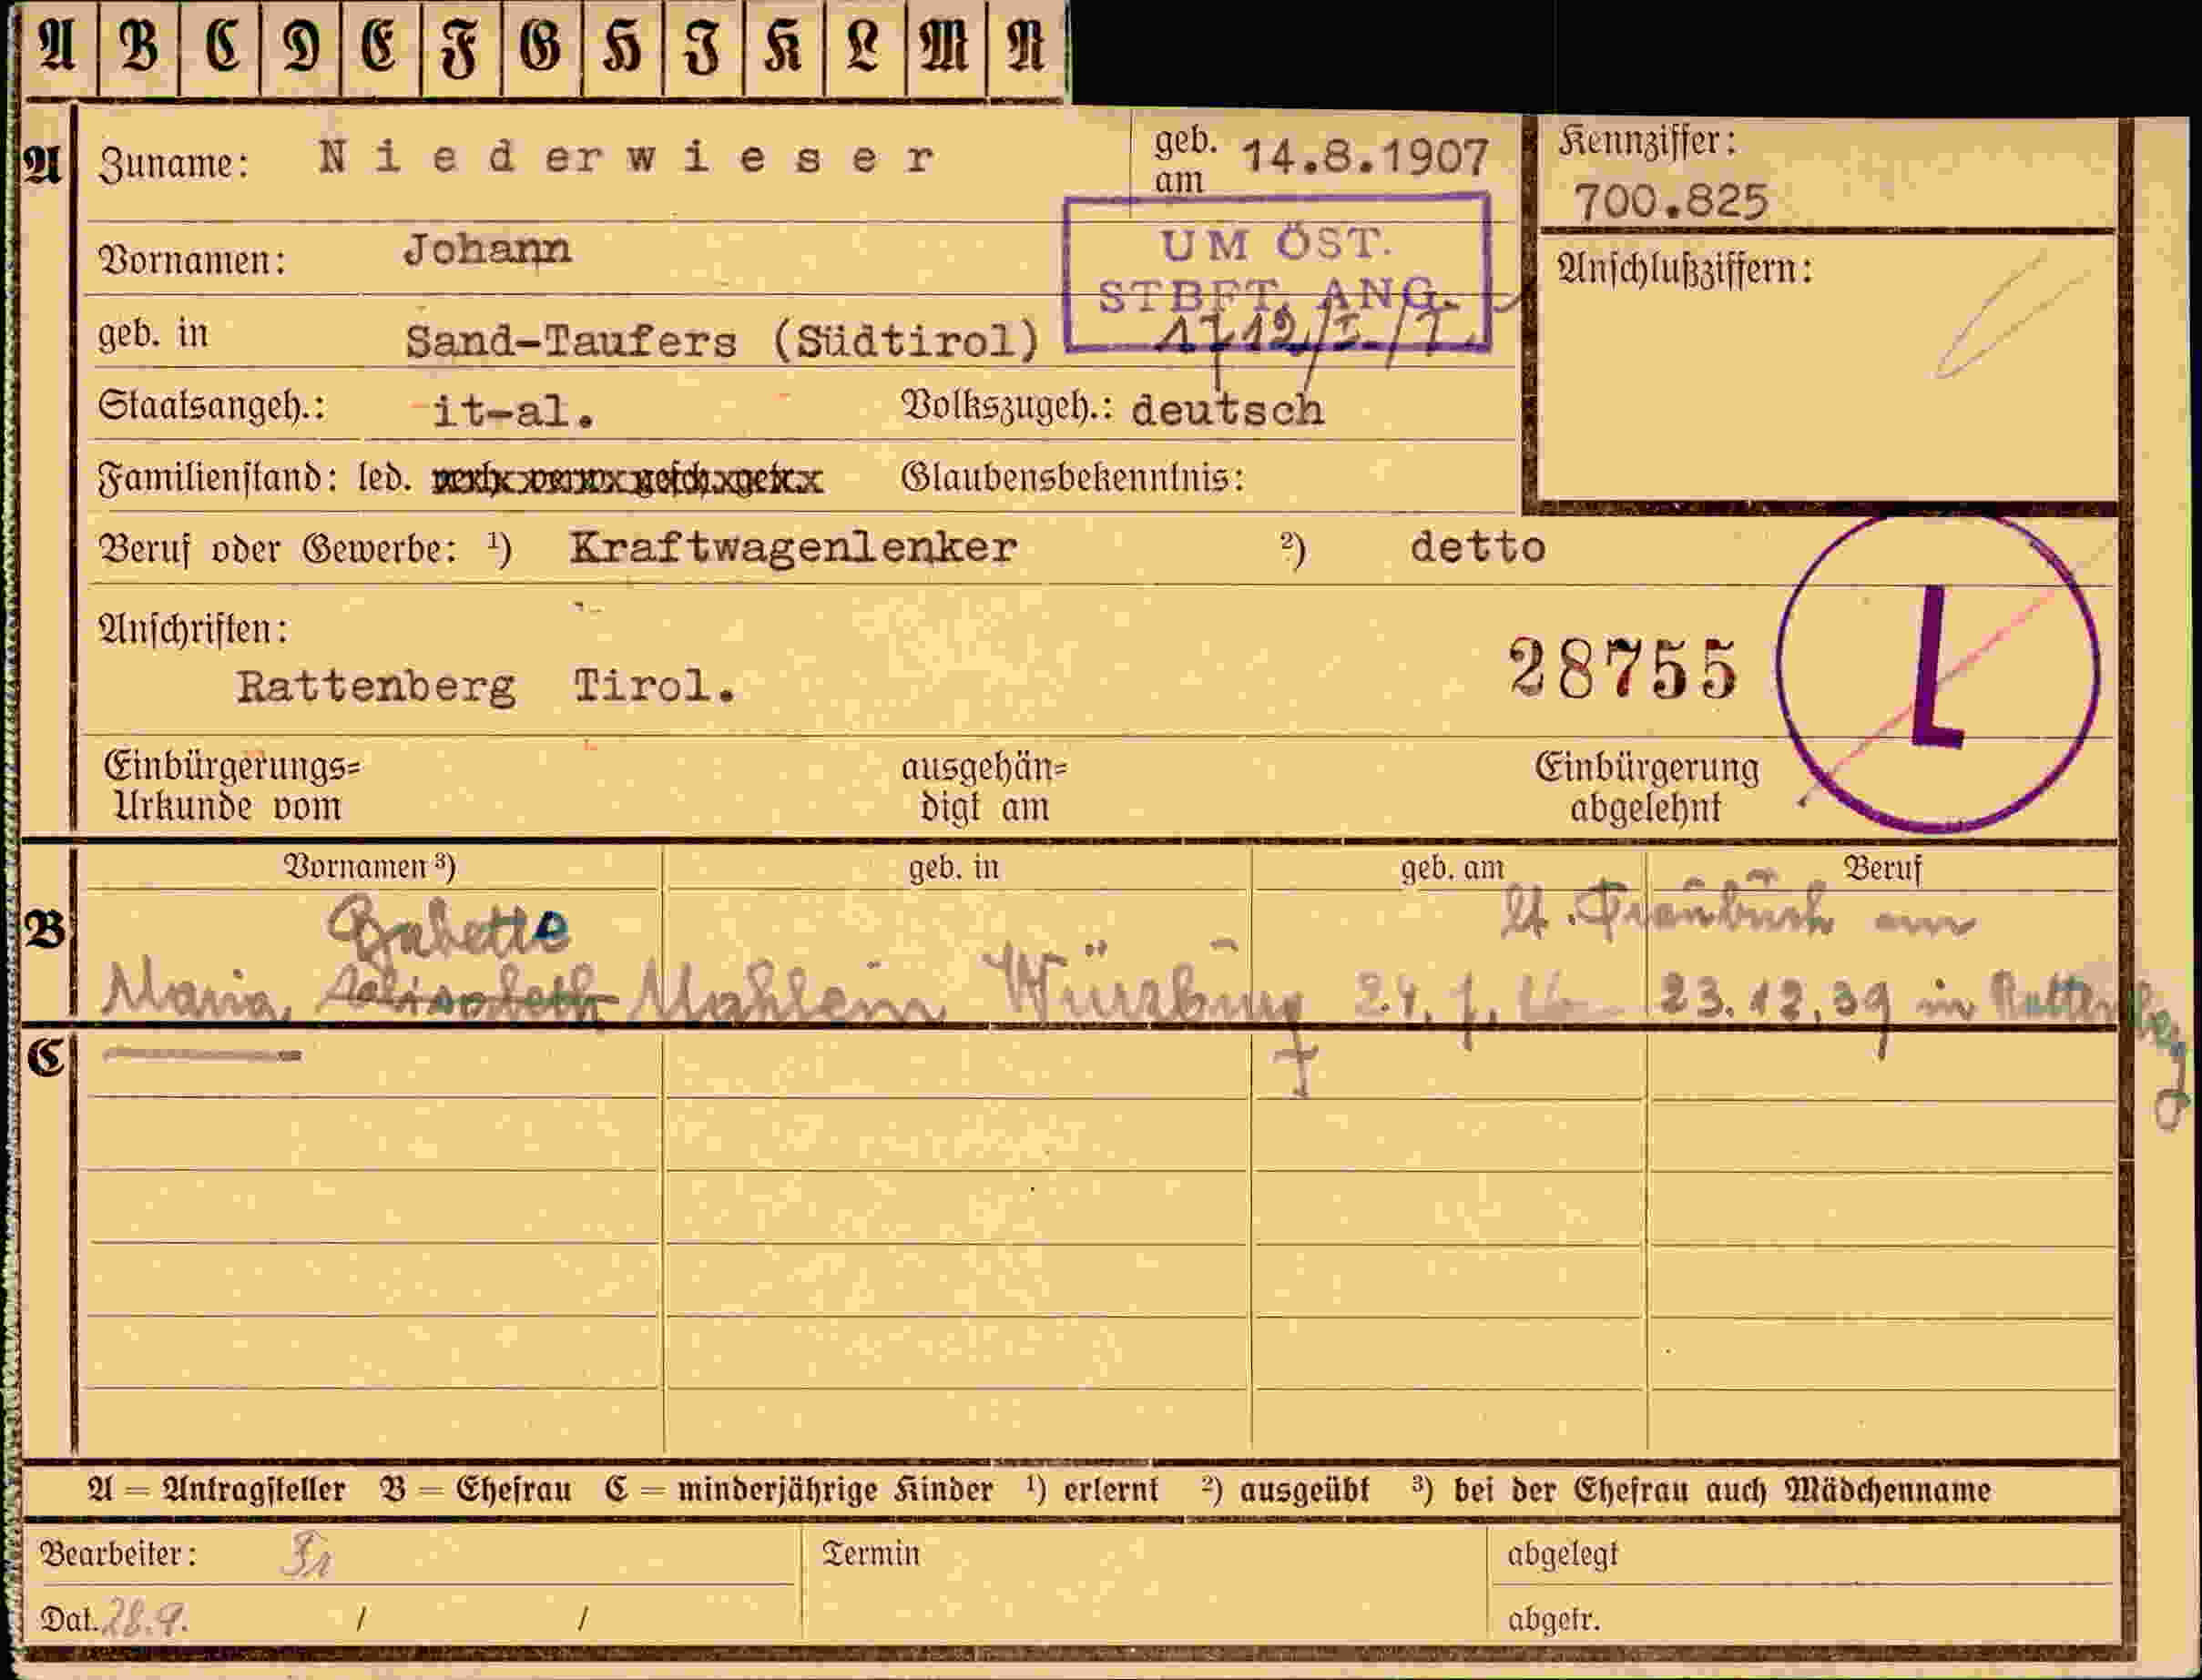 A B C D E F G H I K L M N
A Zuname: Niederwieser geb. am 14.8.1907
Kennziffer: 700.825
Vornamen: Johann
UM ÖST.
STBFT. ANG.
Anschlußziffern:
geb. in Sand-Taufers (Südtirol)
Staatsangeh.: it-al. Volkszugeh.: deutsch
Familienstand: led. verh. verw. gesch. getr. Glaubensbekenntnis:
Beruf oder Gewerbe: ¹) Kraftwagenlenker ²) detto
Anschriften:
Rattenberg Tirol.
28755
L
Einbürgerungs=
Urkunde vom
ausgehän=
digt am
Einbürgerung
abgelehnt
Vornamen ³) geb. in geb. am Beruf
B Babette lt. Traubuch am
Maria Elisabeth Würzburg 24. 23.12.39 in Rattenberg
C
A = Antragsteller B = Ehefrau C = minderjährige Kinder ¹) erlernt ²) ausgeübt ³) bei der Ehefrau auch Mädchenname
Bearbeiter: Termin abgelegt
Dat. 28.9. / / abgetr.